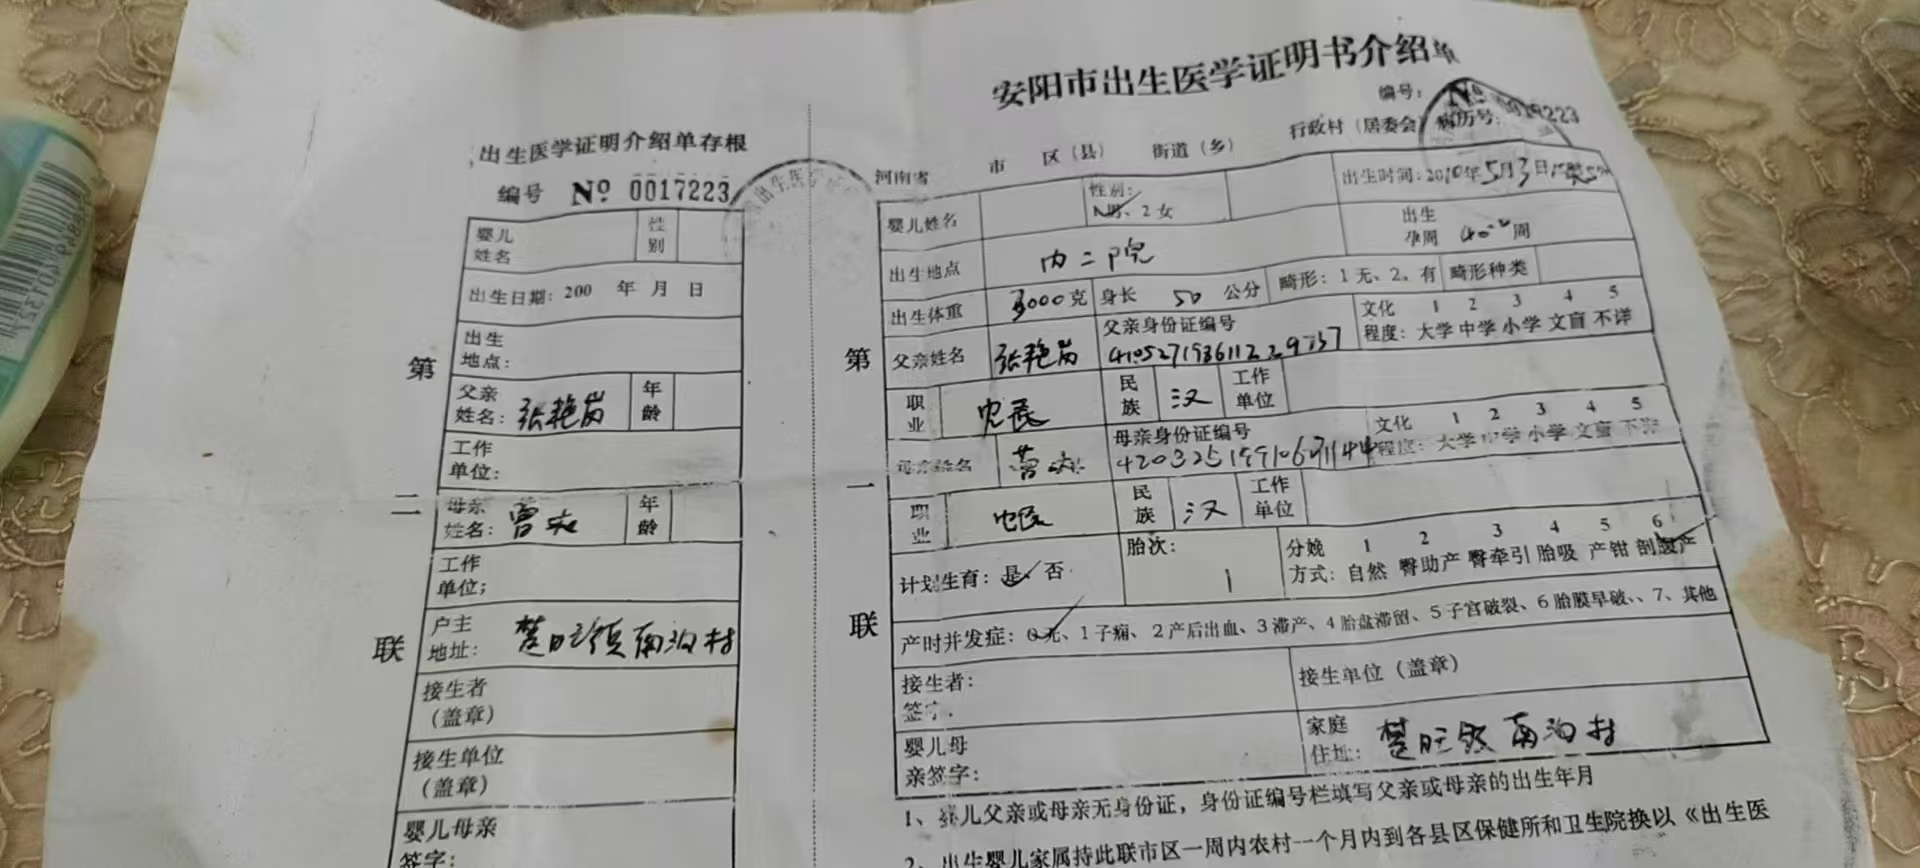 安阳市出生医学证明书介绍单
编号：
№ 0017223
病历号：
河南省 市 区（县） 街道（乡） 行政村（居委会）
婴儿姓名
性别：
1男、2女
出生时间：2010年5月3日
出生地点
内二院
出生
孕周 周
出生体重 3000克 身长 50 公分 畸形：1无、2、有 畸形种类
父亲姓名 张艳岗
父亲身份证编号
文化 1 2 3 4 5
程度：大学 中学 小学 文盲 不详
职业 农民 民族 汉 工作单位
母亲姓名
母亲身份证编号
文化 1 2 3 4 5
程度：大学 中学 小学 文盲 不详
职业 农民 民族 汉 工作单位
计划生育：是、否
胎次：
1
分娩 1 2 3 4 5 6
方式：自然 臀助产 臀牵引 胎吸 产钳 剖腹产
产时并发症：0无、1子痫、2产后出血、3滞产、4胎盘滞留、5子宫破裂、6胎膜早破、、7、其他
接生者：
签字：
接生单位（盖章）
婴儿母
亲签字：
家庭
住址：楚旺镇南泊村
1、婴儿父亲或母亲无身份证，身份证编号栏填写父亲或母亲的出生年月
2、出生婴儿家属持此联市区一周内农村一个月内到各县区保健所和卫生院换以《出生医
第一联
出生医学证明介绍单存根
编号 № 0017223
婴儿
姓名
性别
出生日期：200 年 月 日
出生
地点：
父亲
姓名：张艳岗
年龄
工作
单位：
母亲
姓名：
年龄
工作
单位；
户主
地址：楚旺镇南泊村
接生者
（盖章）
接生单位
（盖章）
婴儿母亲
签字：
第二联